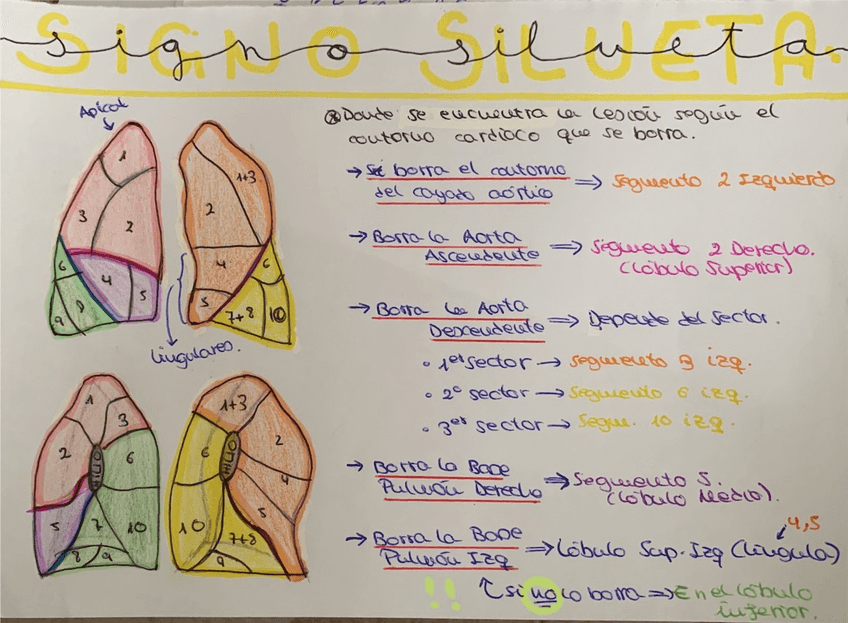 SIGNO SILUETA.
signo silueta
Apical
1
3
2
6
4
5
9
8
1+3
2
4
6
5
7+8
10
Lingulares.
1
3
2
6
5
7
10
8
9
HILIO
1+3
2
6
4
5
10
7+8
9
HILIO
* Donde se encuentra la lesión según el
contorno cardíaco que se borra.
→ Si borra el contorno
del cayado aórtico ⇒ Segmento 2 Izquierdo
→ Borra la Aorta
Ascendente ⇒ Segmento 2 Derecho.
(Lóbulo Superior)
→ Borra la Aorta
Descendente ⇒ Depende del sector.
• 1er sector → Segmento 3 izq.
• 2º sector → Segmento 6 izq.
• 3er sector → Segm. 10 izq.
→ Borra la Base
Pulmón Derecho ⇒ Segmento 5.
(Lóbulo Medio).
4,5
→ Borra la Base
Pulmón Izq ⇒ Lóbulo Sup. Izq (Língula)
!! Si no lo borra ⇒ En el lóbulo
inferior.